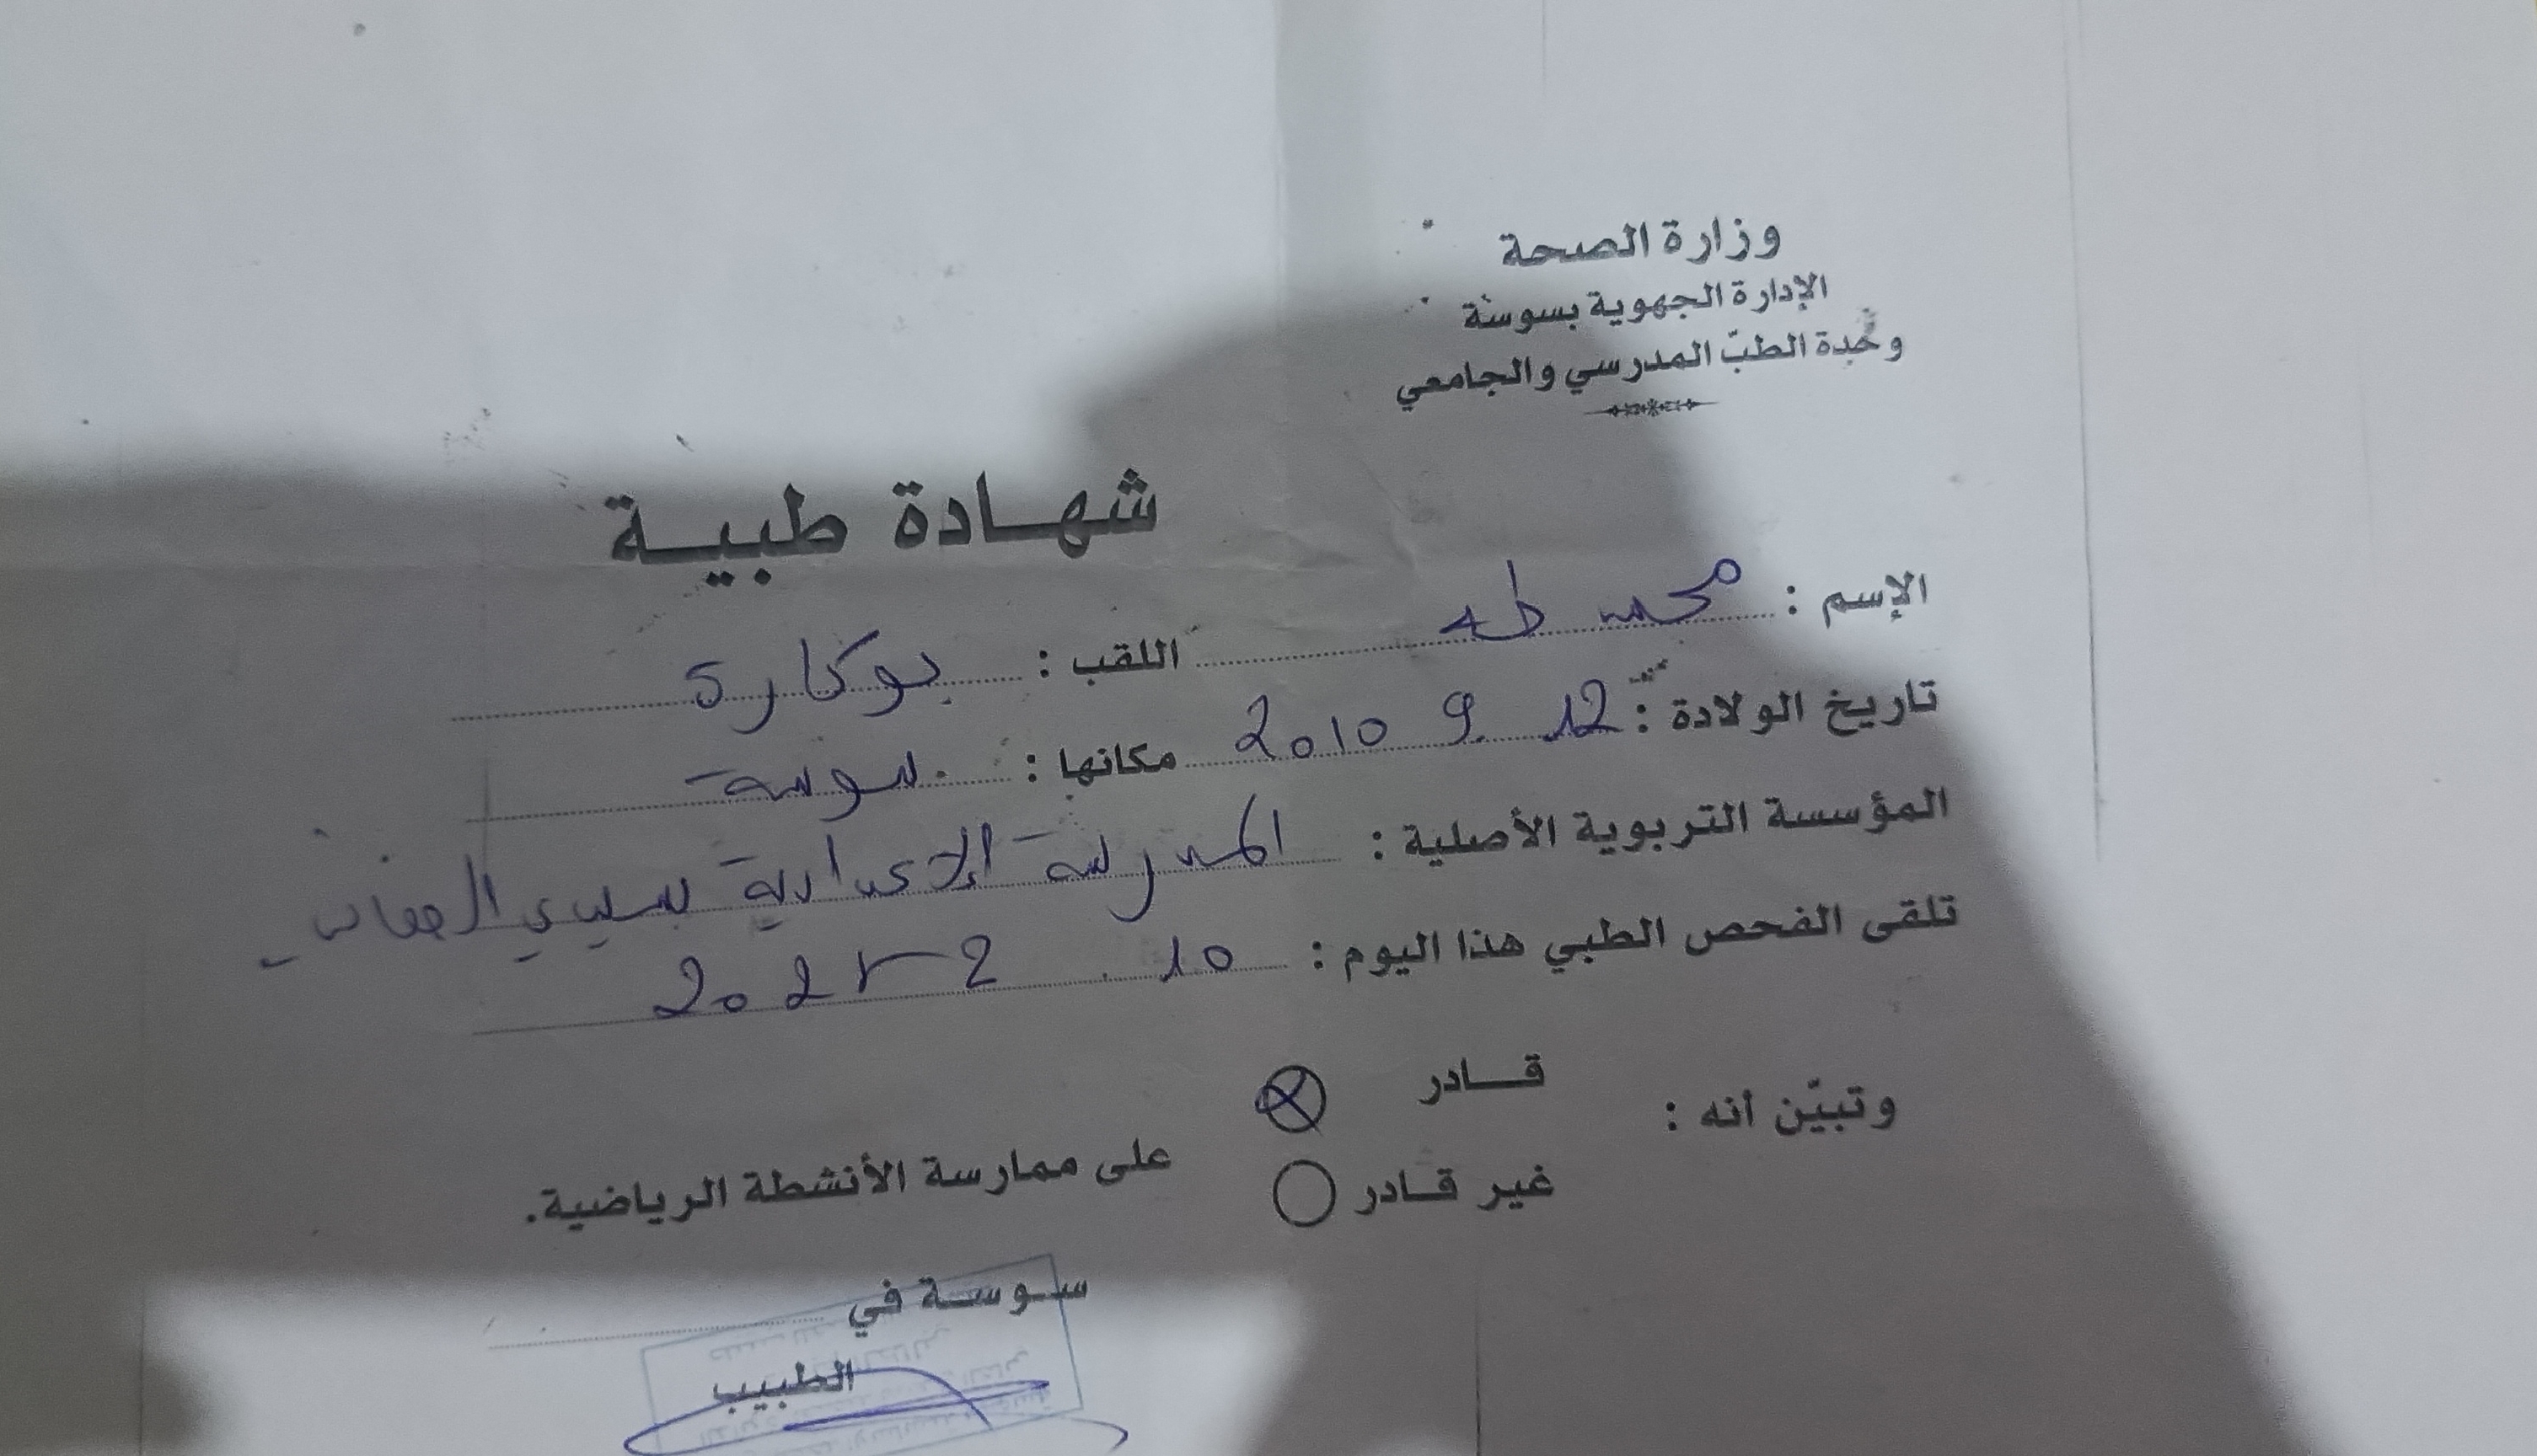 وزارة الصحة
الإدارة الجهوية بسوسة
وحدة الطبّ المدرسي والجامعي
شهـادة طبيـة
الإسم : محمد طه اللقب : بوكارة
تاريخ الولادة : 12 9 2010 مكانها : سوسة
المؤسسة التربوية الأصلية : المدرسة الإعدادية بسيدي
تلقى الفحص الطبي هذا اليوم : 10 2
وتبيّن أنه : قـادر
غير قـادر على ممارسة الأنشطة الرياضية.
سـوسـة في
الطبيب